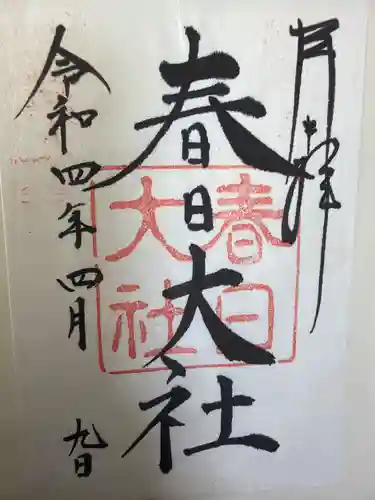 奉拝
春日大社
春日
大社
令和四年四月
九日